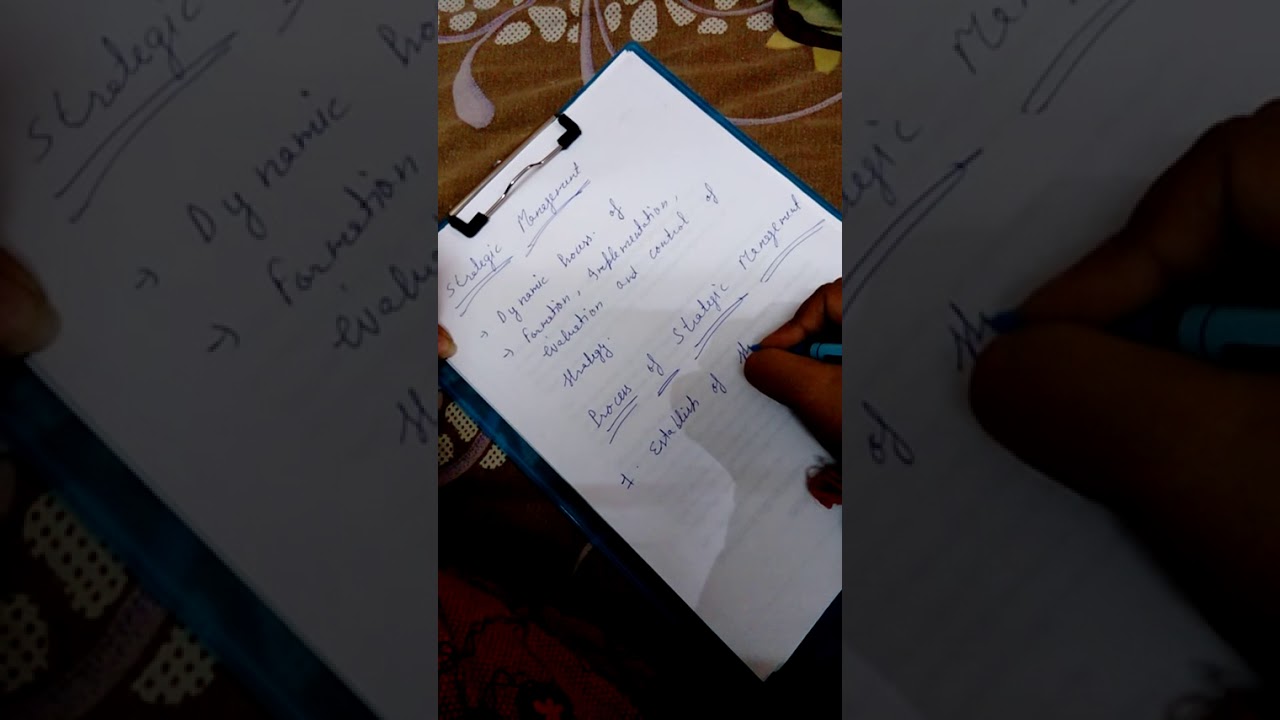 Strategic Management
→ Dynamic Process of
→ Formation, Implementation,
evaluation and control of
strategy.
Process of Strategic Management
1. Establish of